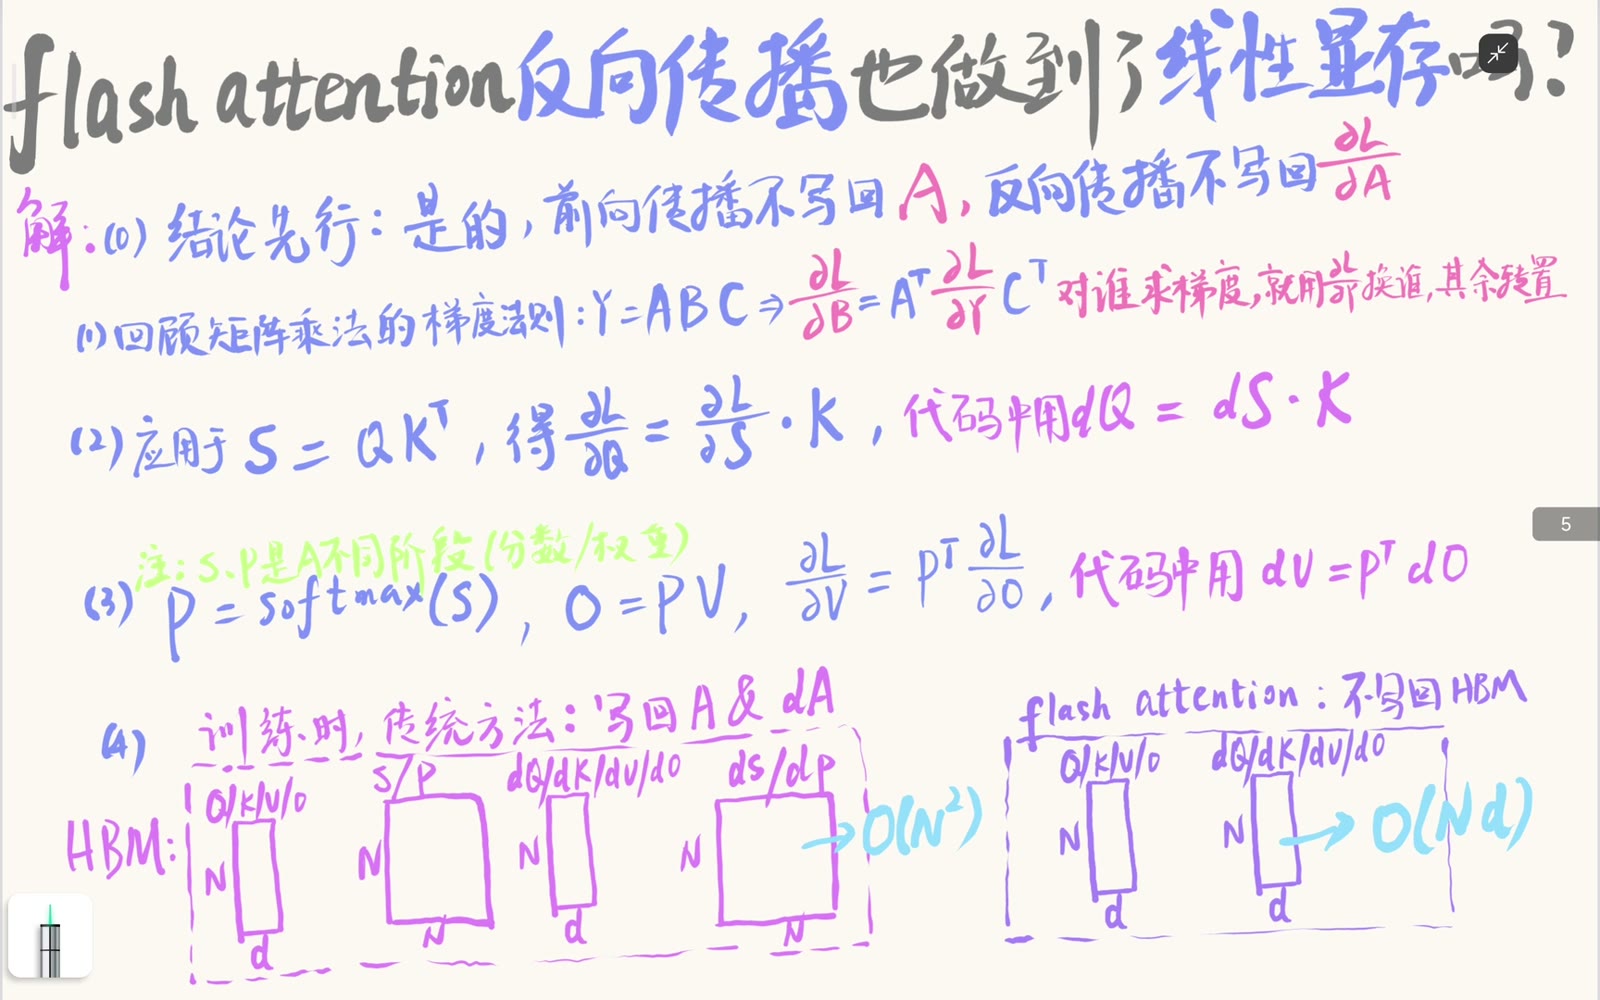 flash attention反向传播也做到了线性显存吗?
解:(0) 结论先行: 是的, 前向传播不写回 A, 反向传播不写回 ∂L/∂A
(1) 回顾矩阵乘法的梯度法则: Y=ABC ⇒ ∂L/∂B = Aᵀ ∂L/∂Y Cᵀ 对谁求梯度,就用∂L/∂Y换谁,其余转置
(2) 应用于 S = QKᵀ , 得 ∂L/∂Q = ∂L/∂S · K , 代码中用dQ = dS · K
注: S、P是A不同阶段(分数/权重)
(3) P = softmax(S) , O = PV, ∂L/∂V = Pᵀ ∂L/∂O , 代码中用 dV = Pᵀ dO
(4) 训练时, 传统方法: 写回 A & dA
flash attention : 不写回 HBM
HBM:
Q/K/V/O
N
d
S/P
N
N
dQ/dK/dV/dO
N
d
dS/dP
N
N
→ O(N²)
Q/K/V/O
N
d
dQ/dK/dV/dO
N
d
→ O(Nd)
5